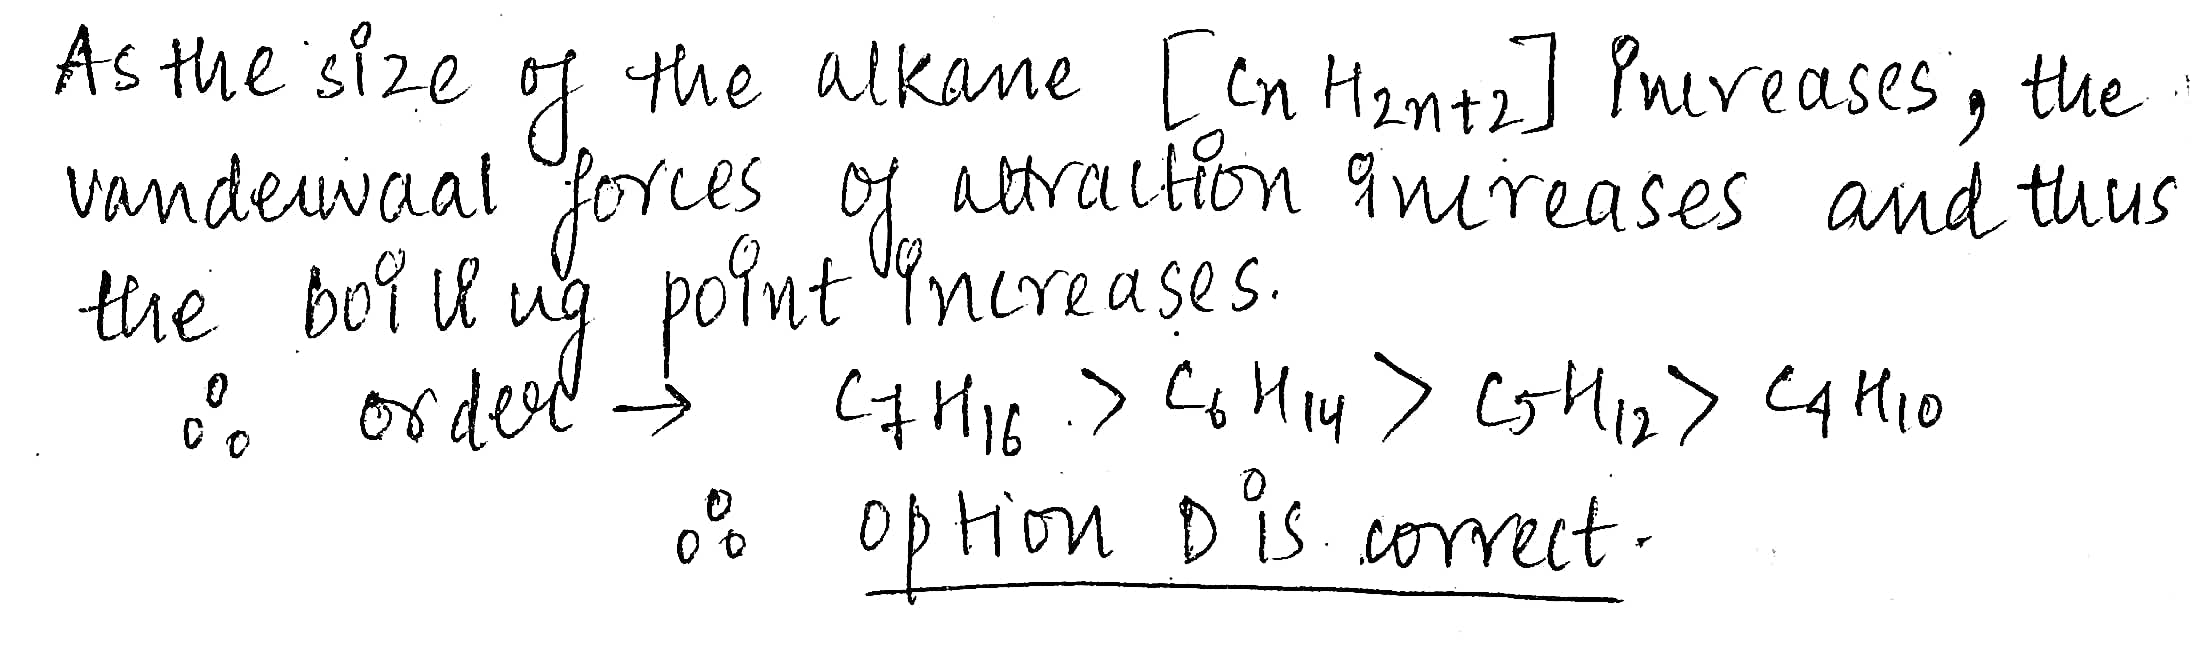 As the size of the alkane [CnH2n+2] increases, the
vanderwaal forces of attraction increases and thus
the boiling point increases.
∴ order → C7H16 > C6H14 > C5H12 > C4H10
∴ option D is correct.